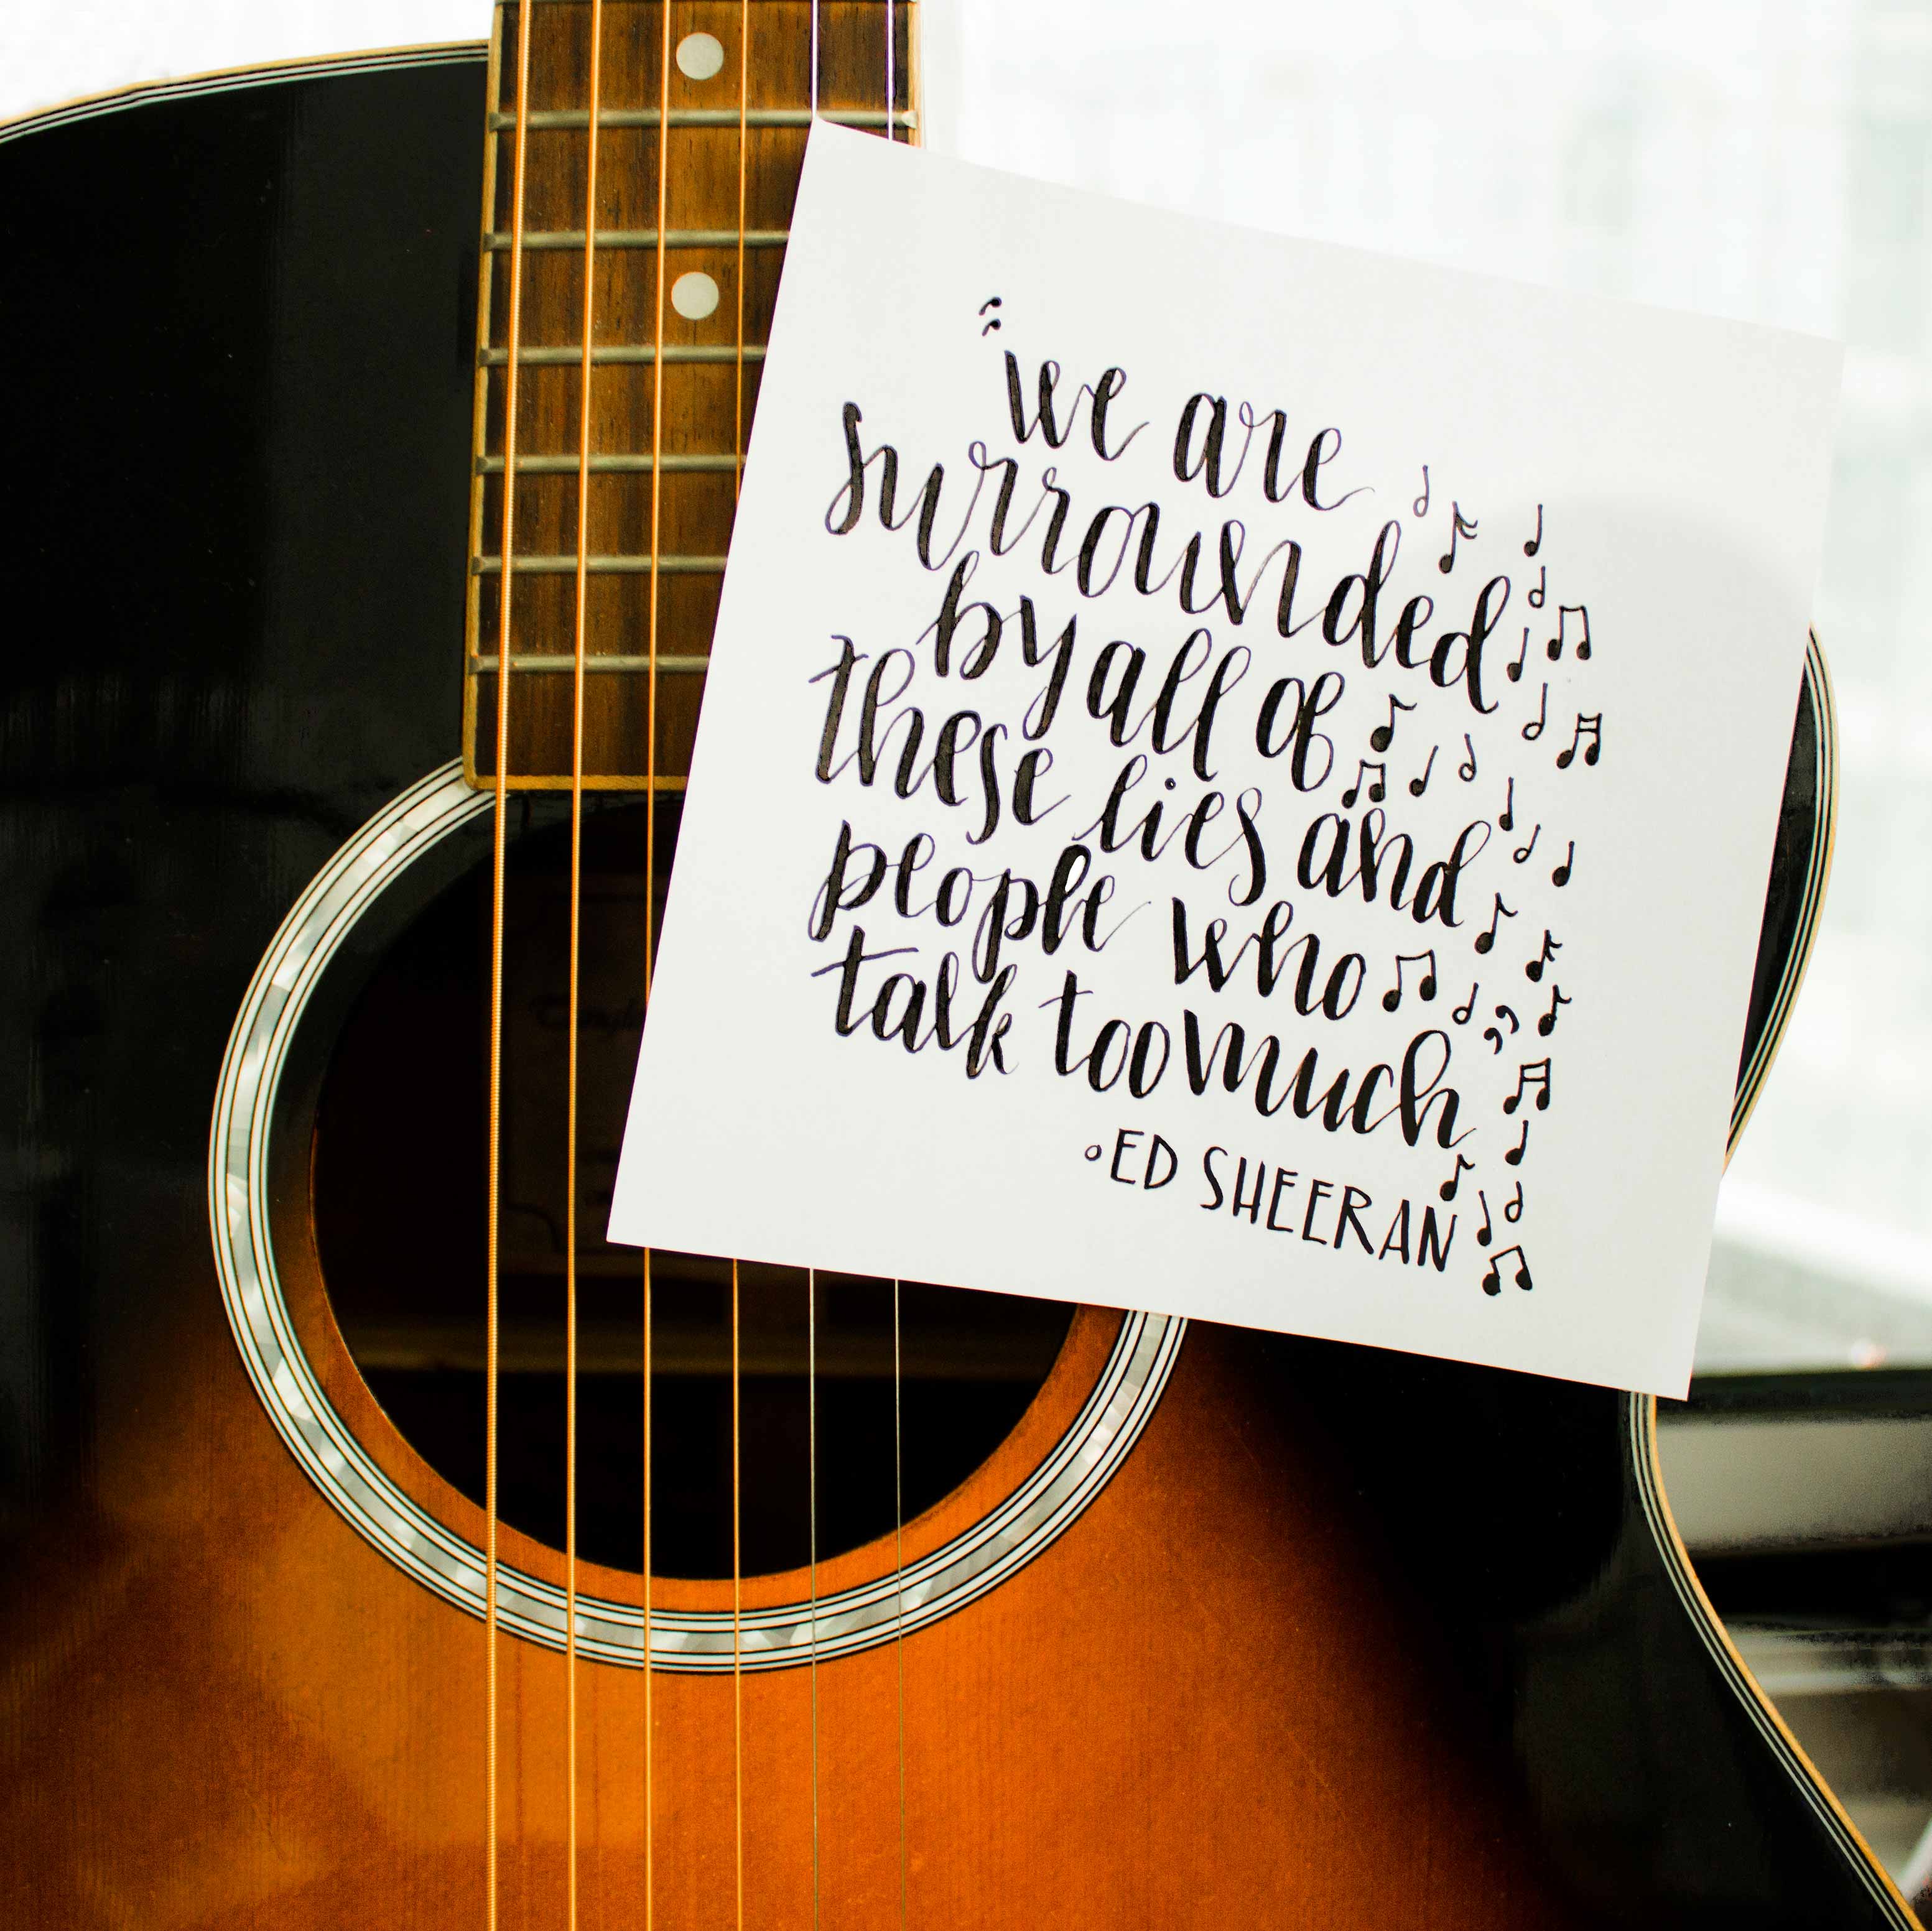 "we are
surrounded
by all of
these lies and
people who
talk too much"
•ED SHEERAN